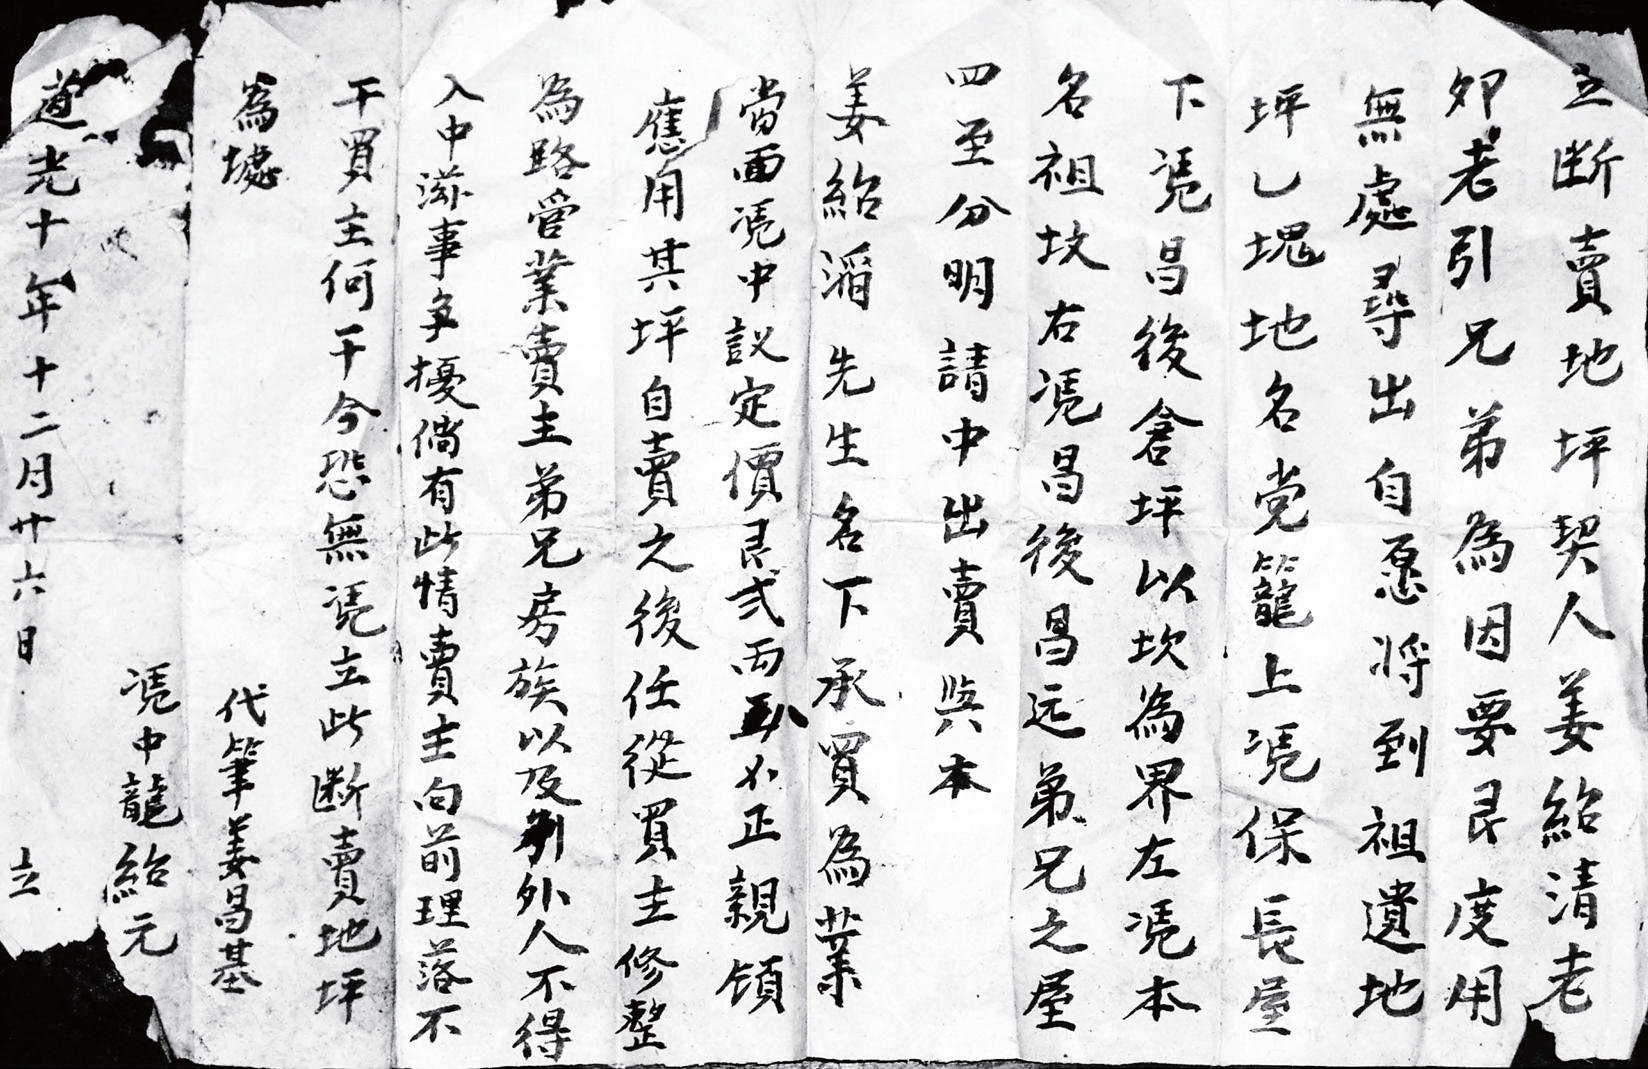 立断賣地坪契人姜紹清老
卯老引兄弟為因要艮度用
無處尋出自愿将到祖遺地
坪乚塊地名党籠上凴保長屋
下凴昌後倉坪以坎為界左凴本
名祖坟右凴昌後昌远弟兄之屋
四至分明請中出賣與本
姜紹滔先生名下承買為業
當面凴中議定價艮弍両正親領
應用其坪自賣之後任從買主修整
為路管業賣主弟兄房族以及外人不得
入中滋事争擾倘有此情賣主向前理落不
干買主何干今恐無凴立此断賣地坪
為據
代筆姜昌基
凴中龍紹元
道光十年十二月廿六日 立